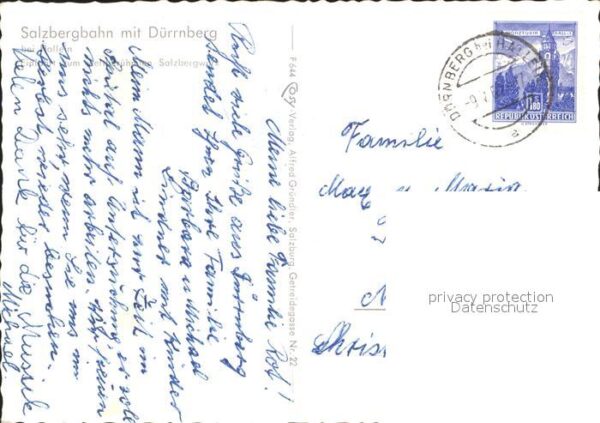 Salzbergbahn mit Dürrnberg
bei Hallein
zum Salzbergwerk
F 644 Cosy Verlag, Alfred Gründler, Salzburg, Getreidegasse Nr. 22
DÜRNBERG bei HALLEIN
-9.
a
1.80
REPUBLIK ÖSTERREICH
Meine liebe Familie Rol!
Recht viele Grüße aus Dürrnberg
sendet Ihnen Ihre Familie
Barbara u Michael
Lindner mit Kinder
Mein Mann ist zur Zeit im
auf Untersuchung er soll
nicht mehr arbeiten.
uns sehr wenn Sie uns im
Herbst wieder besuchen.
Vielen Dank für die Musik
Michael
Familie
Max u Maria
privacy protection
Datenschutz